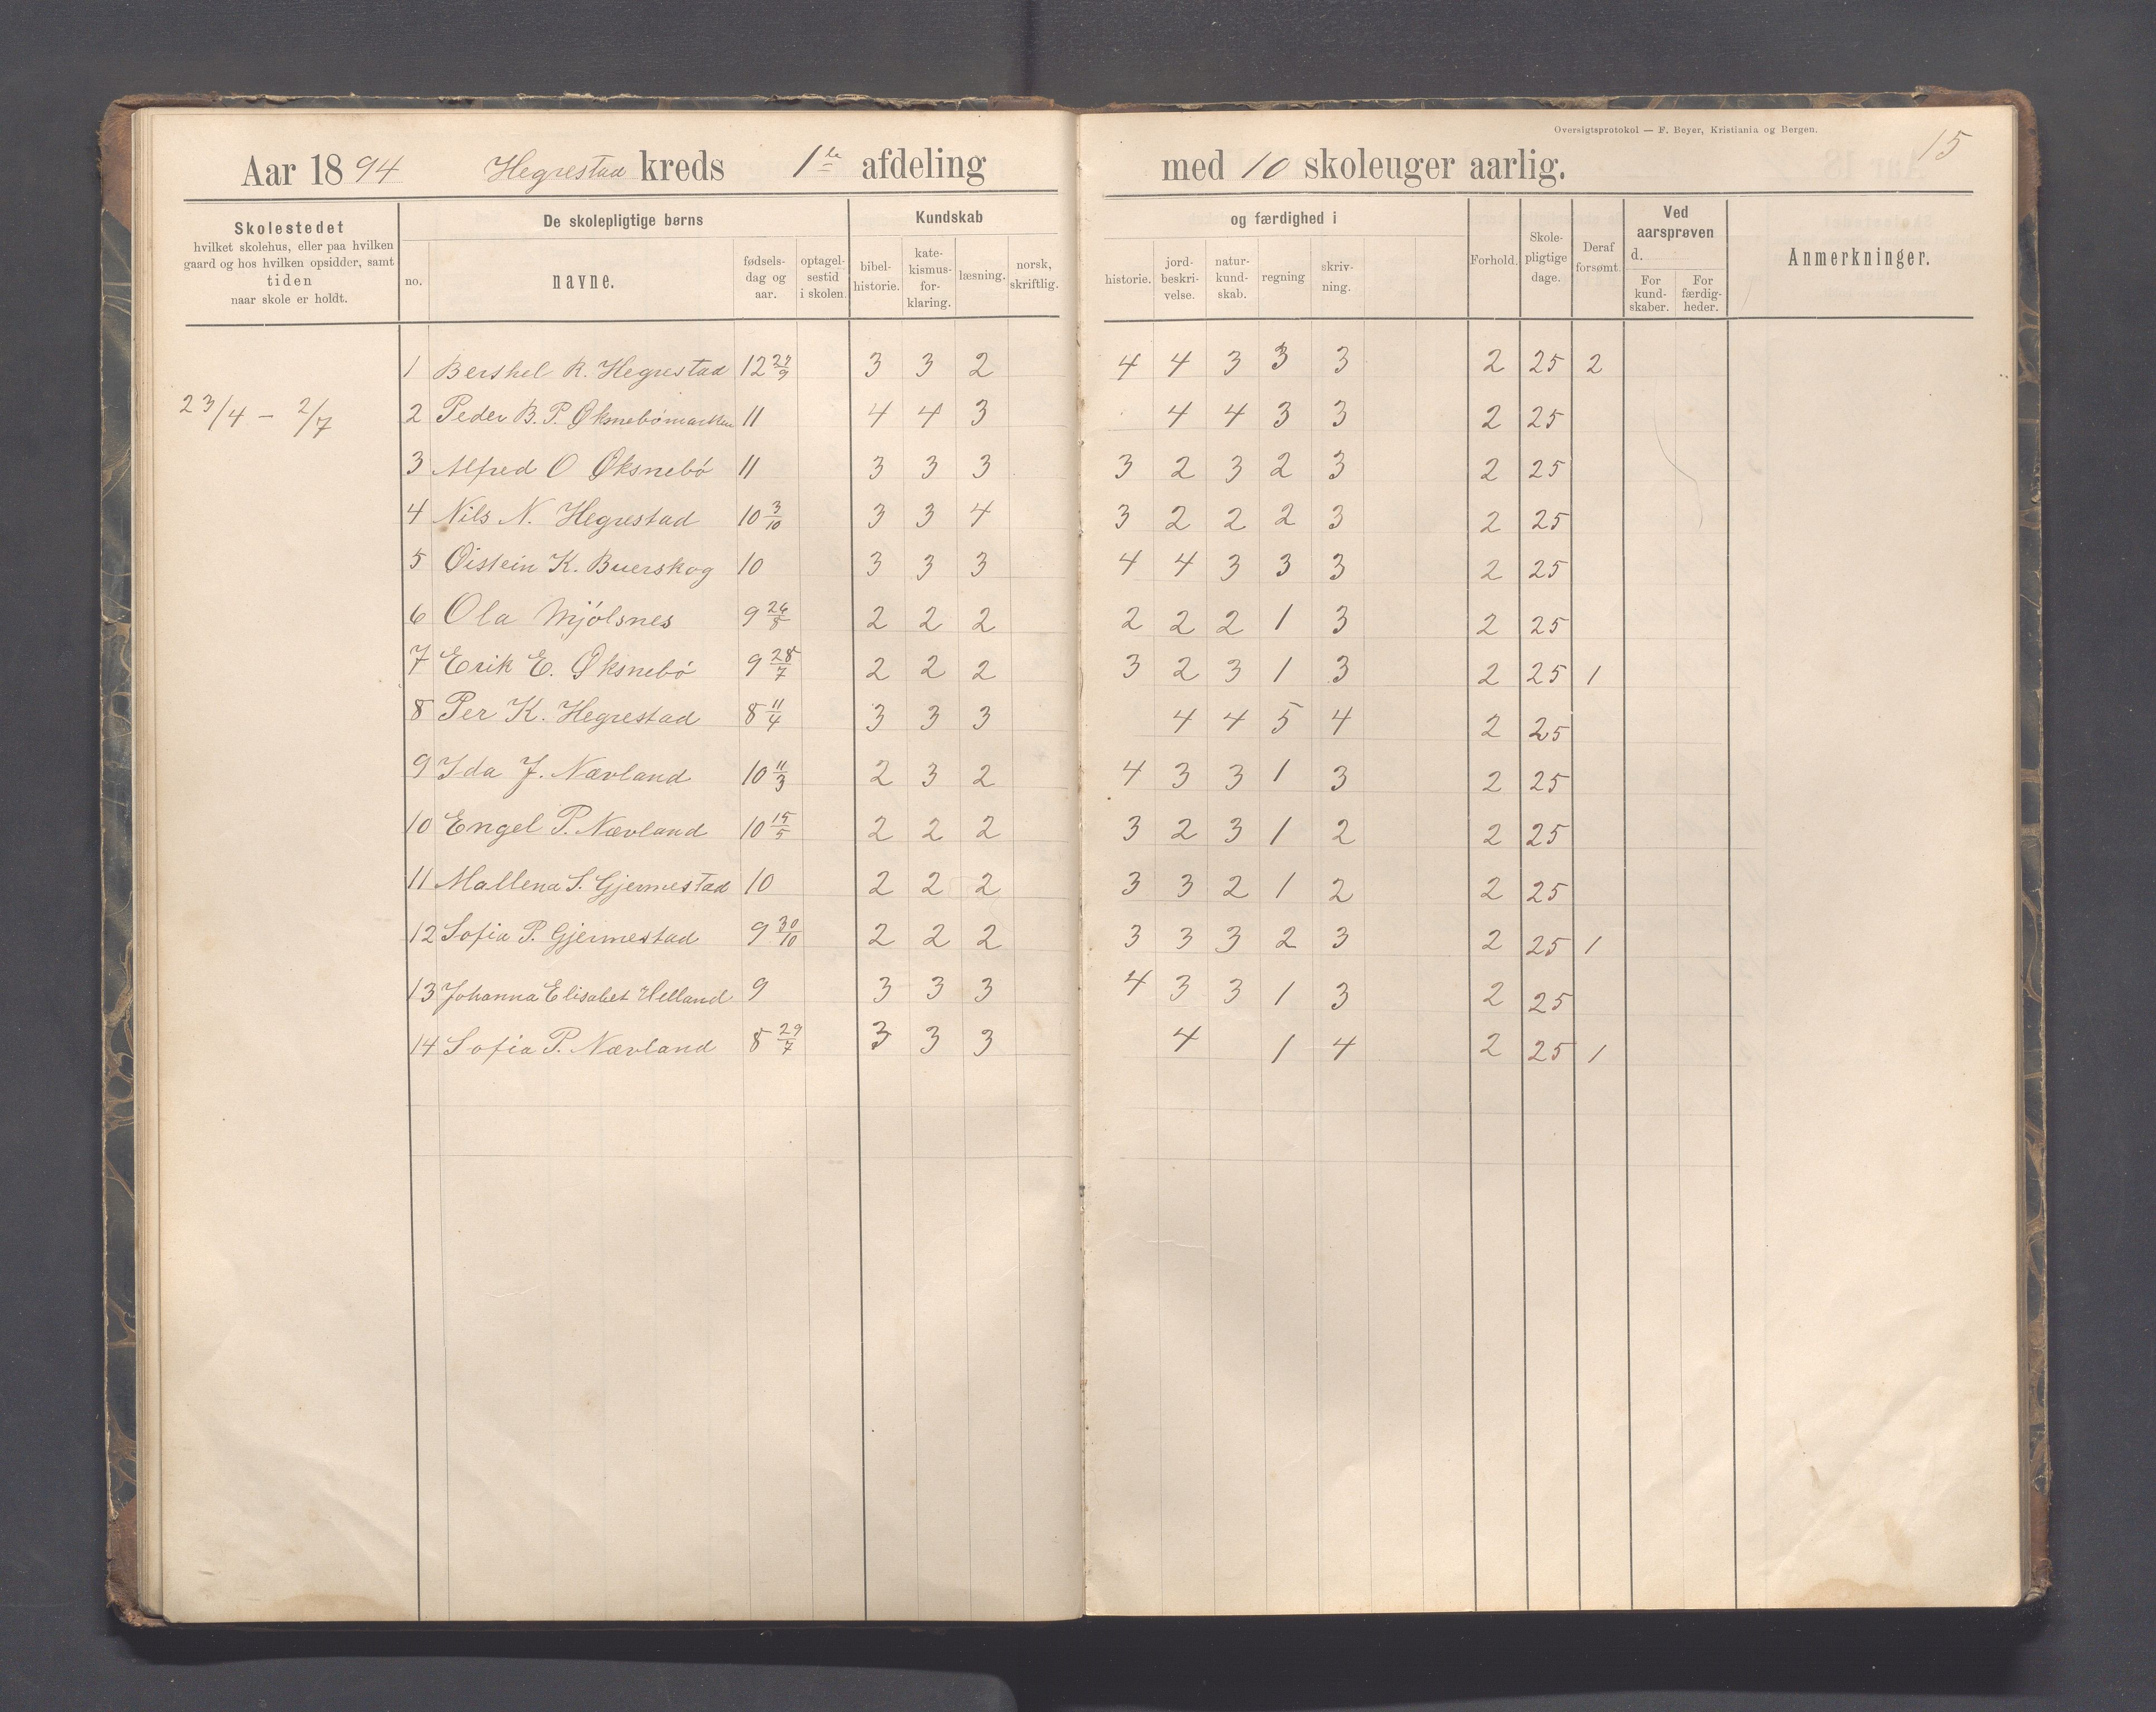 Oversigtsprotokol — F. Beyer, Kristiania og Bergen.
15
Aar 1894 Hegrestad kreds 1ste afdeling med 10 skoleuger aarlig.
Skolestedet hvilket skolehus, eller paa hvilken gaard og hos hvilken opsidder, samt tiden naar skole er holdt.
De skolepligtige børns
no. navne. fødsels-dag og aar. optagel-sestid i skolen.
Kundskab og færdighed i
bibel-historie. kate-kismus-for-klaring. læsning. norsk, skriftlig. historie. jord-beskri-velse. natur-kund-skab. regning skriv-ning.
Forhold. Skole-pligtige dage. Deraf forsømt.
Ved aarsprøven d. For kund-skaber. For færdig-heder.
Anmerkninger.
1 Bershel R. Hegrestad 12 27/9 3 3 2 4 4 3 3 3 2 25 2
23/4 – 2/7
2 Peder B. P. Øksnebømarken 11 4 4 3 4 4 3 3 2 25
3 Alfred O Øksnebó 11 3 3 3 3 2 3 2 3 2 25
4 Nils N. Hegrestad 10 3/10 3 3 4 3 2 2 2 3 2 25
5 Øistein K. Buerskog 10 3 3 3 4 4 3 3 3 2 25
6 Ola Mjólsnes 9 26/8 2 2 2 2 2 2 1 3 2 25
7 Erik E. Øksnebó 9 28/7 2 2 2 3 2 3 1 3 2 25 1
8 Per K. Hegrestad 8 11/4 3 3 3 4 4 5 4 2 25
9 Ida J. Nævland 10 11/3 2 3 2 4 3 3 1 3 2 25
10 Engel P. Nævland 10 15/5 2 2 2 3 2 3 1 2 2 25
11 Mallena S. Gjermestad 10 2 2 2 3 3 2 1 2 2 25
12 Sofia P. Gjermestad 9 30/10 2 2 2 3 3 3 2 3 2 25 1
13 Johanna Elisabet Helland 9 3 3 3 4 3 3 1 3 2 25
14 Sofia P. Nævland 8 29/7 3 3 3 4 1 4 2 25 1